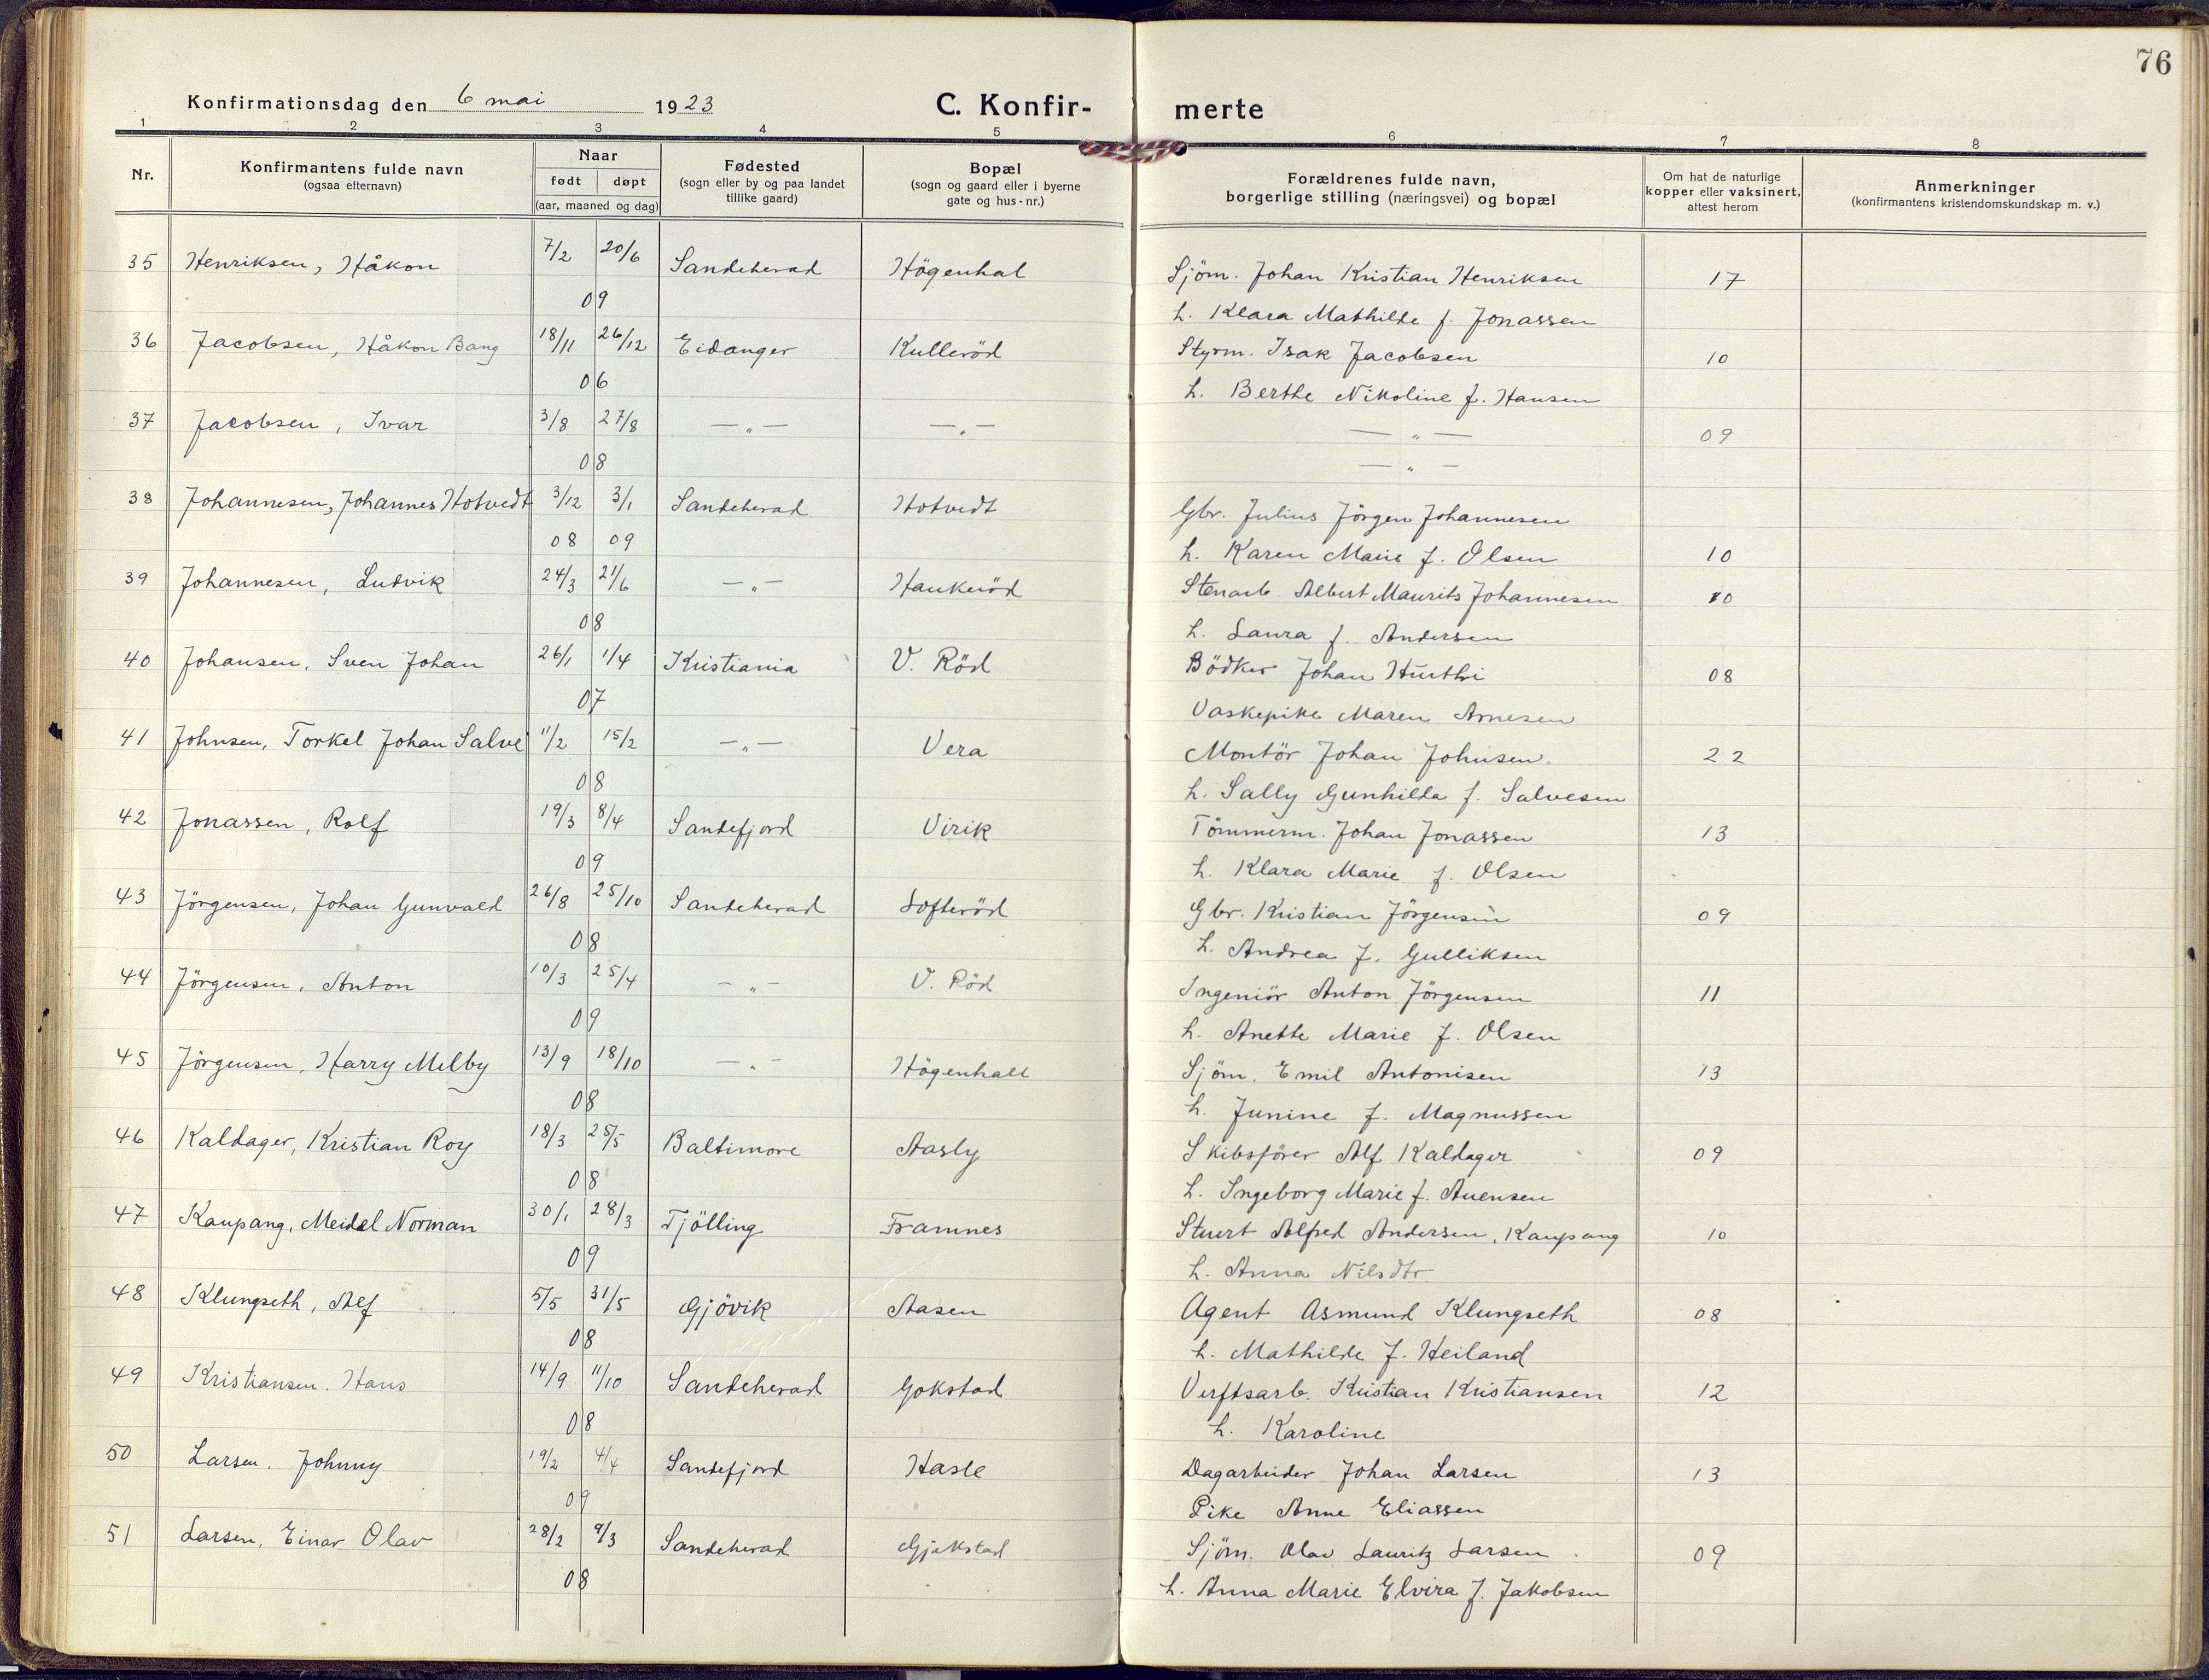 76
Konfirmationsdag den 6 mai 1923 C. Konfir- merte
1 2 3 4 5 6 7 8
Nr. Konfirmantens fulde navn (ogsaa efternavn) Naar født døpt (aar, maaned og dag) Fødested (sogn eller by og paa landet tillike gaard) Bopæl (sogn og gaard eller i byerne gate og hus-nr.) Forældrenes fulde navn, borgerlige stilling (næringsvei) og bopæl Om hat de naturlige kopper eller vaksinert, attest herom Anmerkninger (konfirmantens kristendomskundskap m. v.)
35 Henriksen, Håkon 7/2 20/6 Sandeherad Högenhal Sjöm. Johan Kristian Henriksen 17
09 h. Klara Mathilde f. Jonassen
36 Jacobsen, Håkon Bang 18/11 26/12 Eidanger Kulleröd Styrm. Isak Jacobsen 10
06 h. Berthe Nikoline f. Hansen
37 Jacobsen, Ivar 3/8 27/8 —„— —„— —„— 09
08 —„—
38 Johannesen, Johannes Hotvedt 3/12 3/1 Sandeherad Hotvedt Gbr. Julius Jörgen Johannesen
08 09 h. Karen Marie f. Olsen 10
39 Johannesen, Ludvik 24/3 21/6 —„— Haukeröd Stenarb. Albert Maurits Johannesen 10
08 h. Laura f. Andersen
40 Johansen, Sven Johan 26/1 1/4 Kristiania V. Röd Bödker Johan 08
07 Vaskepike Maren Arnesen
41 Johnsen, Torkel Johan Salve 11/2 15/2 —„— Vera Montör Johan Johnsen. 22
08 h. Sally Gunhilda f. Salvesen
42 Jonassen, Rolf 19/3 8/4 Sandefjord Virik Tömmerm. Johan Jonassen 13
09 h. Klara Marie f. Olsen
43 Jörgensen, Johan Gunvald 26/8 25/10 Sandeherad Softeröd Gbr. Kristian Jörgensen 09
08 h. Andrea f. Gulliksen
44 Jörgensen, Anton 10/3 25/4 —„— V. Röd Ingeniör Anton Jörgensen 11
09 h. Anette Marie f. Olsen
45 Jörgensen, Harry Melby 13/9 18/10 —„— Högenhall Sjöm. Emil Antonisen 13
08 h. Junine f. Magnussen
46 Kaldager, Kristian Roy 18/3 25/5 Baltimore Aasly Skibsförer Alf Kaldager 09
08 h. Ingeborg Marie f. Auensen
47 Kaupang, Meidel Norman 30/1 28/3 Tjölling Framnes Stuert Alfred Andersen, Kaupang 10
09 h. Anna Nilsdtr
48 Klungseth, Alf 5/5 31/5 Gjövik Aasen Agent Asmund Klungseth 08
08 h. Mathilde f. Heiland
49 Kristiansen. Hans 14/9 11/10 Sandeherad Gokstad Verftsarb. Kristian Kristiansen 12
08 h. Karoline
50 Larsen. Johnny 19/2 4/4 Sandefjord Hasle Dagarbeider Johan Larsen 13
09 Pike Anne Eliassen
51 Larsen, Einar Olav 28/2 9/3 Sandeherad Gjekstad Sjöm. Olav Lauritz Larsen 09
08 h. Anna Marie Elvira f. Jakobsen